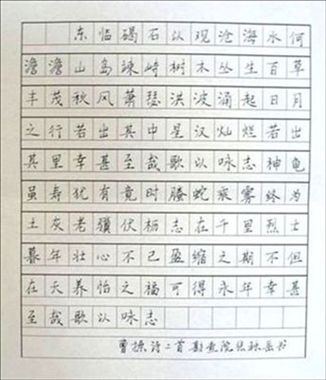 东临碣石以观沧海水何
澹澹山岛竦峙树木丛生百草
丰茂秋风萧瑟洪波涌起日月
之行若出其中星汉灿烂若出
其里幸甚至哉歌以咏志神龟
虽寿犹有竟时螣蛇乘雾终为
土灰老骥伏枥志在千里烈士
暮年壮心不已盈缩之期不但
在天养怡之福可得永年幸甚
至哉歌以咏志
曹操诗二首 书